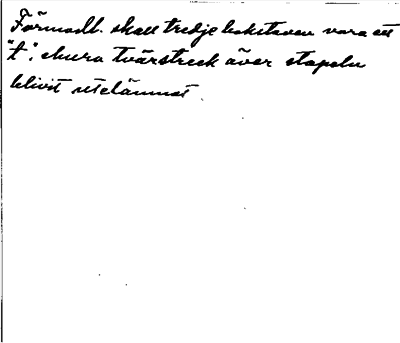 Förmodl. skall tredje bokstaven vara ett
"t", ehuru tvärstreck över stapeln
blivit utelämnat.